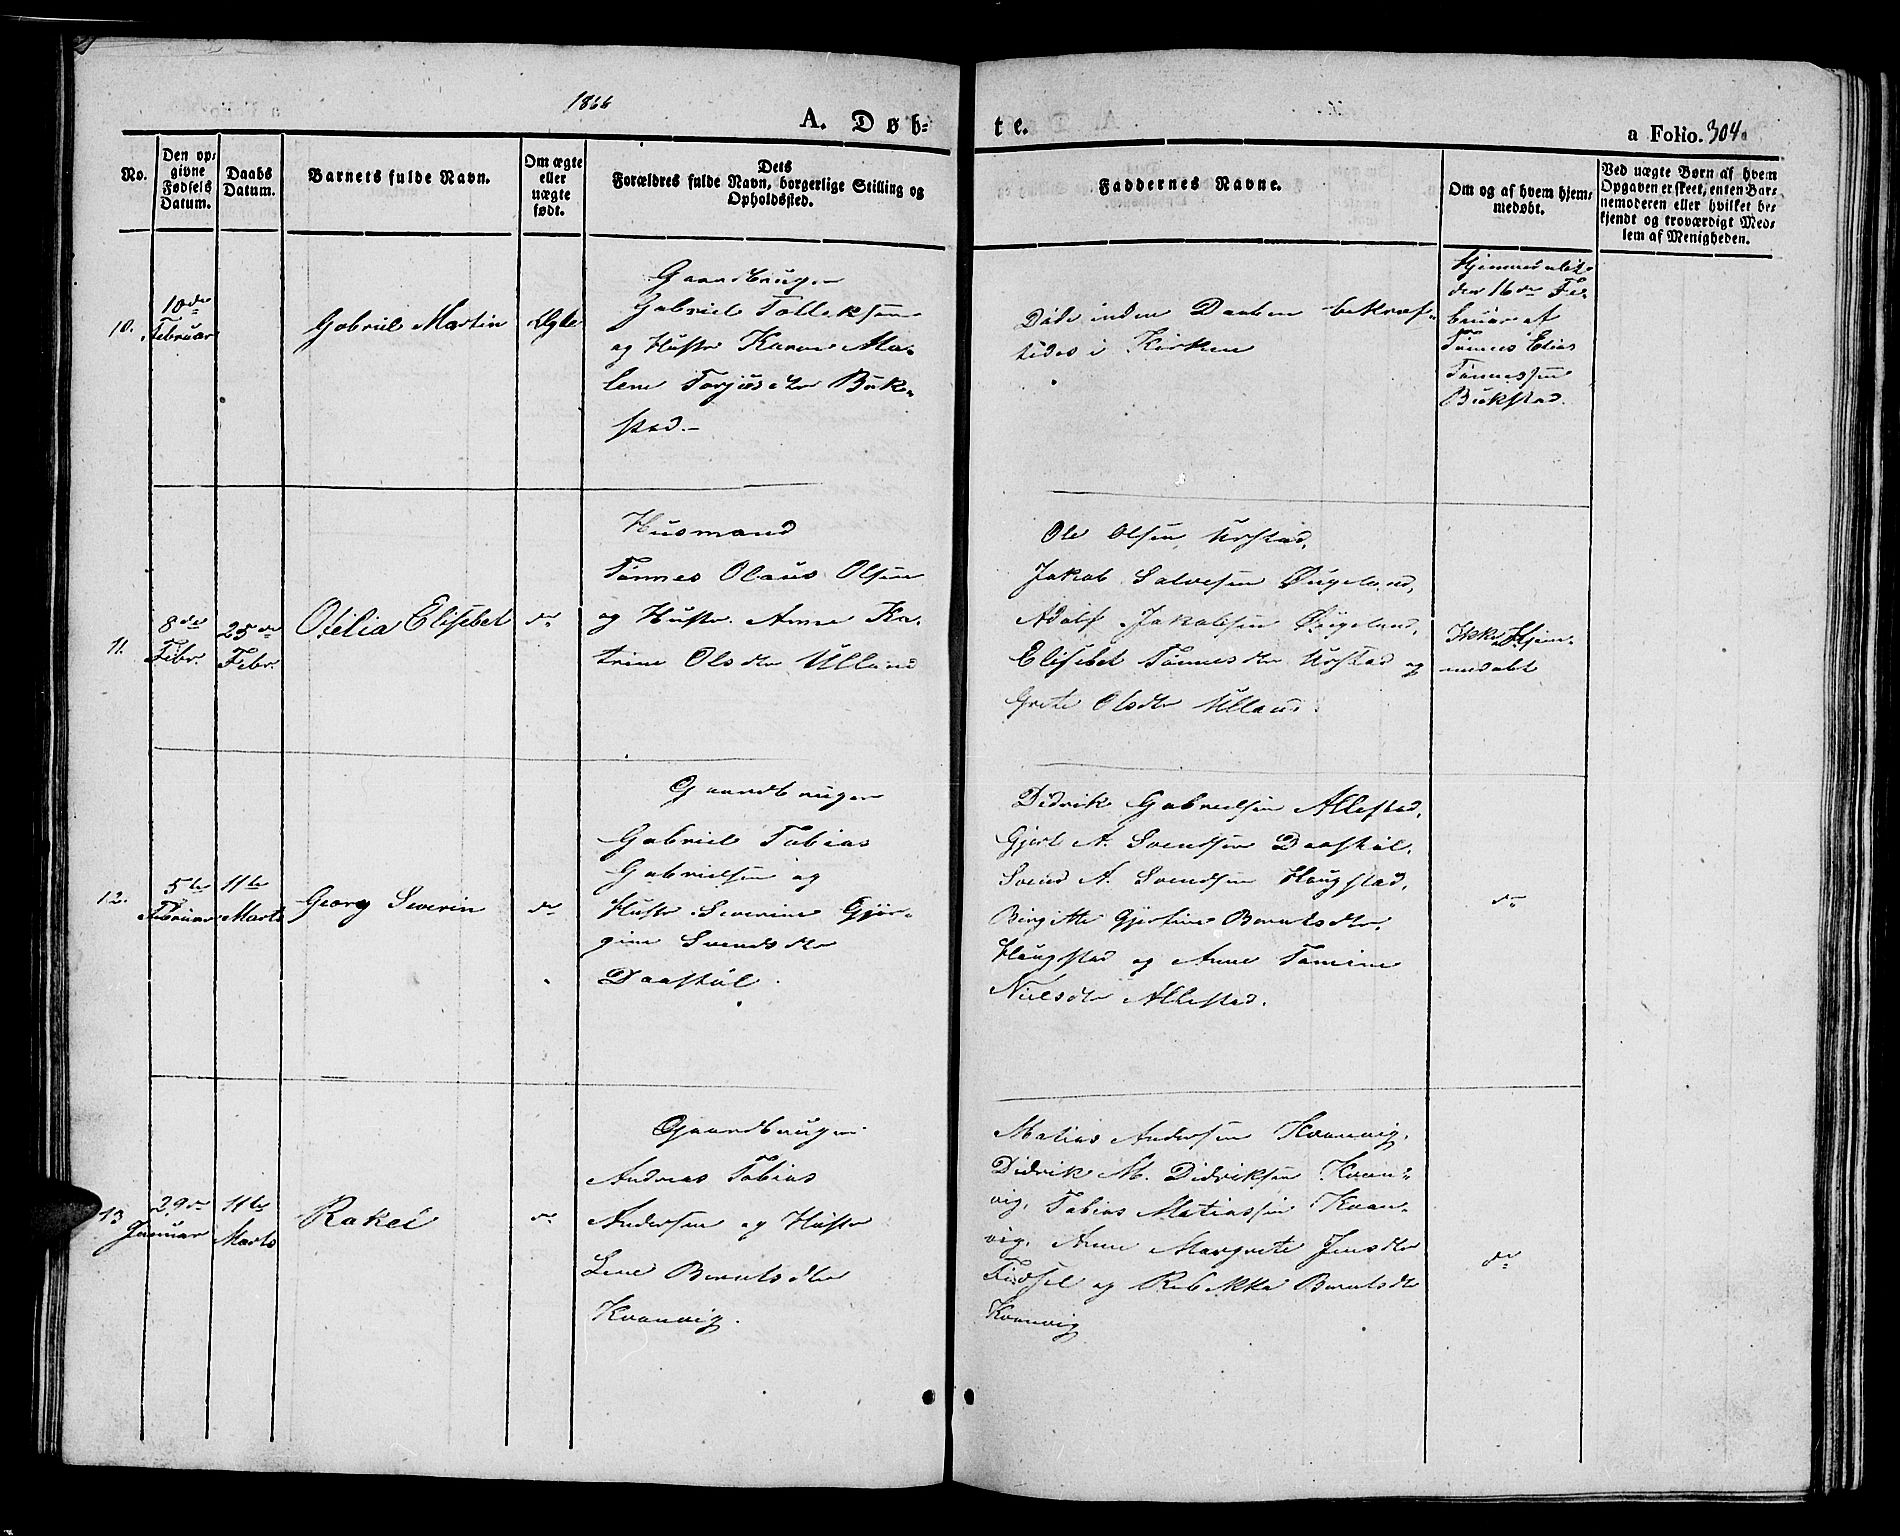 1866
A. Døb-
te.
a Folio. 304.
No.
Den op-
givne
Fødsels
Datum.
Daabs
Datum.
Barnets fulde Navn.
Om ægte
eller
uægte
født.
Dets
Forældres fulde Navn, borgerlige Stilling og
Opholdssted.
Faddernes Navne.
Om og af hvem hjem-
medøbt.
Ved uægte Børn af hvem
Opgaven er skeet, enten Bar-
nemoderen eller hvilket be-
kjendt og troværdigt Med-
lem af Menigheden.
10.
10de
Februar
Gabriel Martin
Ægte
Gaardbruger
Gabriel Tollaksen
og Hustr Karen Ma-
lene Torjusdtr Birke-
stad.
Døde inden Daaben bekræf-
tedes i Kirken
Hjemmedøbt
den 16de Fe-
bruar af
Tønnes Elias
Tønnessen
Birkstad.
11.
8de
Febr.
25de
Febr.
Otelia Elisebet
do
Husmand
Tønnes Olaus Olsen
og Hustr. Anne Ka-
trine Olsdtr Ulland
Ole Olsen, Urstad,
Jakob Salvesen Øigeland,
Adolf Jakobsen Øigeland,
Elisebet Tønnesdtr Urstad og
Grete Olsdtr Ulland.
Ikke Hjem-
medøbt
12.
5te
Februar
11te
Marts
Georg Severin
do
Gaardbruger
Gabriel Tobias
Gabrielsen og
Hustr. Severine Gjør-
gine Svendsdtr
Daastøl.
Didrik Gabrielsen Allestad,
Gjert A. Svendsen Daastøl.
Svend A. Svendsen Haugstad,
Birgitte Gjertine Berntsdtr.
Haugstad og Anne Tomine
Nielsdtr Allestad.
do
13
29de
Januar
11te
Marts
Rakel
do
Gaardbruger
Andreas Tobias
Andersen og Hustr
Lene Berntsdtr
Kvanvig.
Matias Andersen Kvanvig,
Didrik M. Didriksen Kvan-
vig, Tobias Matiassen Kvan-
vig, Anne Margrete Jensdtr
Tidsel og Rebekka Berntsdtr
Kvanvig
do